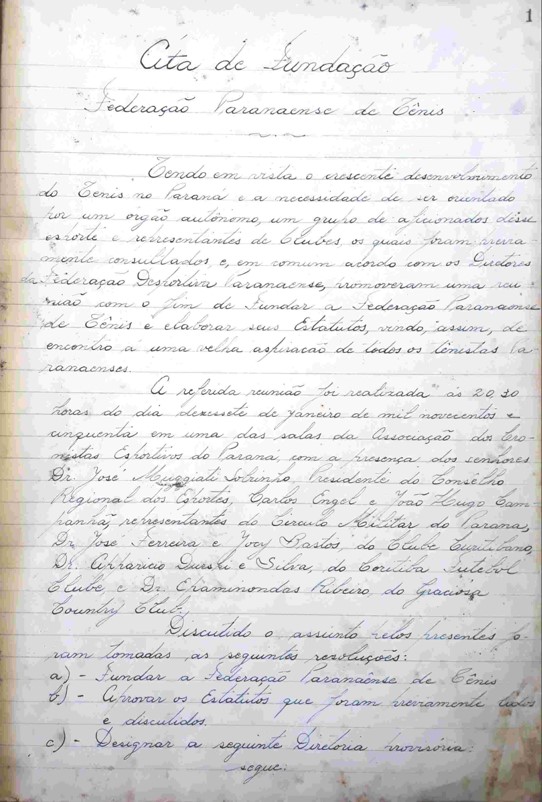 1
Ata de Fundação
Federação Paranaense de Tênis
Tendo em vista o crescente desenvolvimento
do Tenis no Paraná e a necessidade de ser orientado
por um orgão autônomo, um grupo de aficionados dêsse
esporte e representantes de Clubes, os quais foram previa-
mente consultados, e, em comum acordo com os Diretores
da Federação Desportiva Paranaense, promoveram uma reu-
nião com o fim de Fundar a Federação Paranaense
de Tênis e elaborar seus Estatutos, vindo, assim, de
encontro a uma velha aspiração de todos os tênistas Pa-
ranaenses.
A referida reunião foi realizada às 20,30
horas do dia dezessete de janeiro de mil novecentos e
cinquenta em uma das salas da Associação dos Cro-
nistas Esportivos do Paraná, com a presença dos senhores
Dr. José Muggiati Sobrinho, Presidente do Conselho
Regional dos Esportes, Carlos Engel e João Hugo Cam-
panhã, representantes do Circulo Militar do Parana,
Dr. José Ferreira e Jocy Bastos, do Clube Curitibano,
Dr. Apparicio Durski e Silva, do Coritiba Futebol
Clube, e Dr. Epaminondas Ribeiro, do Graciosa
Country Club.
Discutido o assunto pelos presentes fo-
ram tomadas as seguintes resoluções:
a) - Fundar a Federação Paranaense de Tênis
b) - Aprovar os Estatutos que foram previamente lidos
e discutidos.
c) - Designar a seguinte Diretoria provisória:
segue.